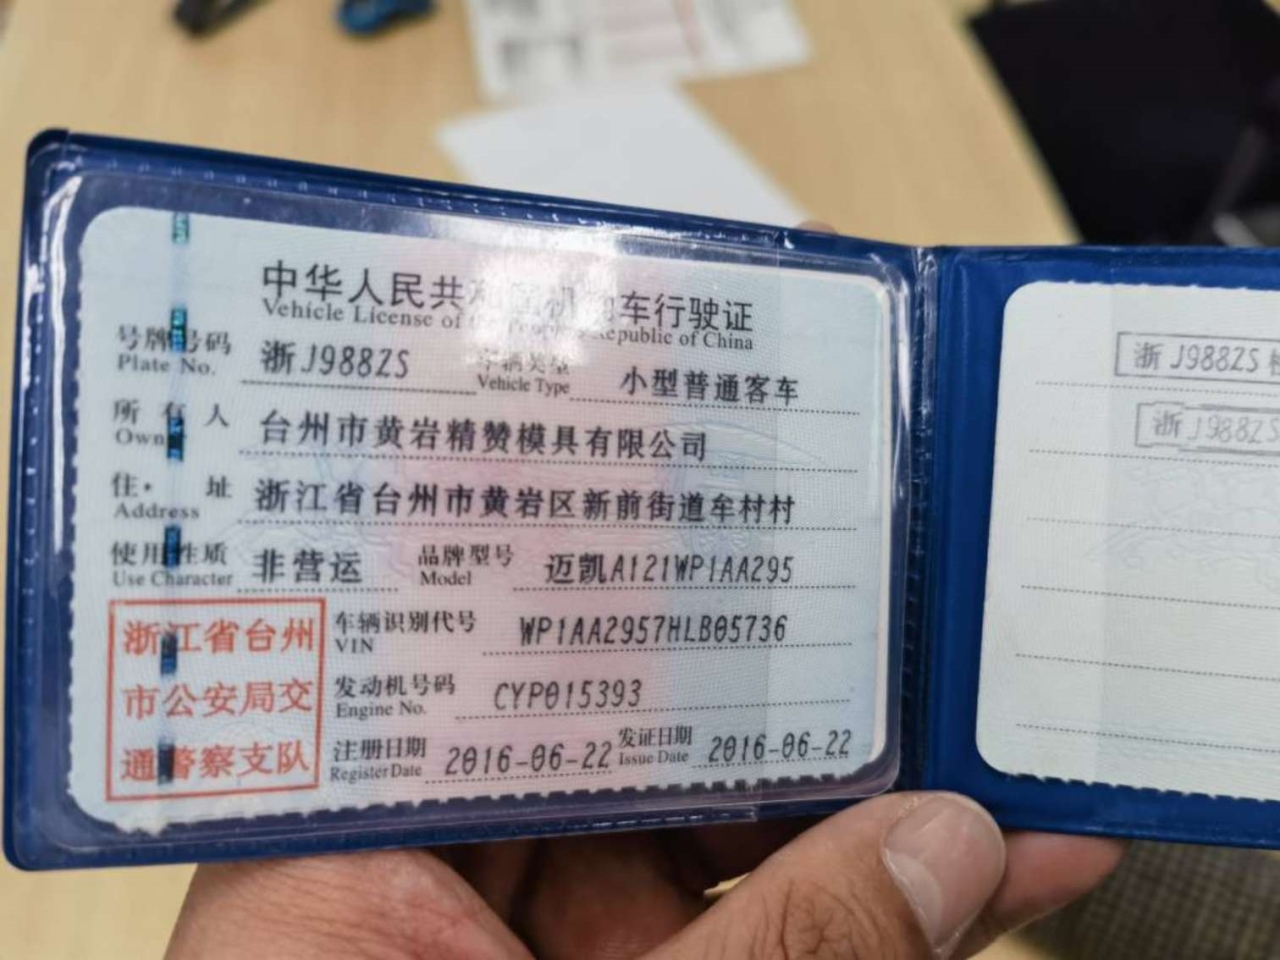 中华人民共和国机动车行驶证
Vehicle License of the People's Republic of China
号牌号码 浙J988ZS 车辆类型 小型普通客车
Plate No. Vehicle Type
所有人 台州市黄岩精赞模具有限公司
Owner
住址 浙江省台州市黄岩区新前街道牟村村
Address
使用性质 非营运 品牌型号 迈凯A121WP1AA295
Use Character Model
浙江省台州
市公安局交
通警察支队
车辆识别代号 WP1AA2957HLB05736
VIN
发动机号码 CYP015393
Engine No.
注册日期 2016-06-22 发证日期 2016-06-22
Register Date Issue Date
浙J988ZS
浙J988ZS